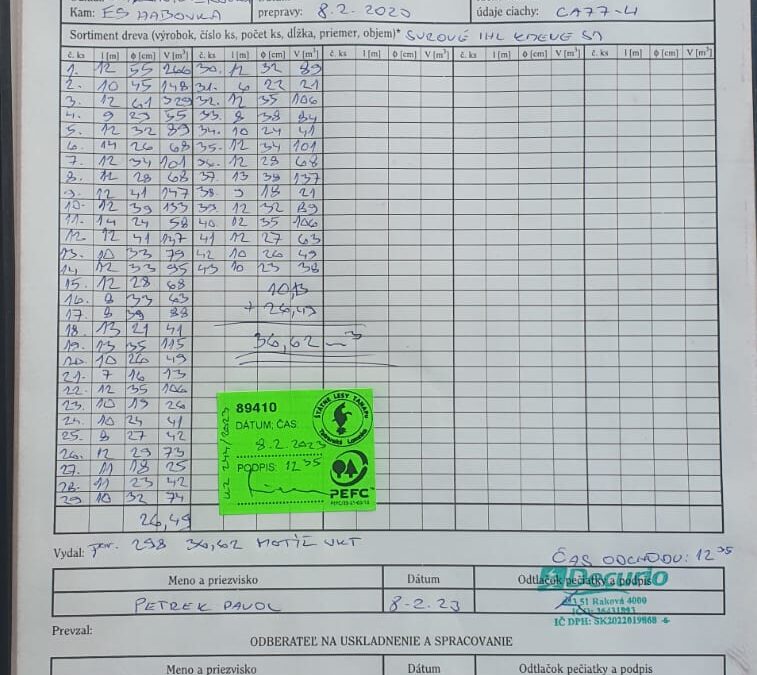 Kam: ES HABOVKA prepravy: 8.2.2023 údaje ciachy: CA77-4
Sortiment dreva (výrobok, číslo ks, počet ks, dĺžka, priemer, objem)* SUROVÉ IHL KMENE SM
č. ks l [m] ϕ [cm] V [m³] č. ks l [m] ϕ [cm] V [m³] č. ks l [m] ϕ [cm] V [m³] č. ks l [m] ϕ [cm] V [m³] č. ks l [m] ϕ [cm] V [m³]
1. 12 55 266 30. 12 32 89
2. 10 45 148 31. 6 22 21
3. 12 61 329 32. 12 35 106
4. 9 29 55 33. 8 38 84
5. 12 32 89 34. 10 24 41
6. 14 26 68 35. 12 34 101
7. 12 34 101 36. 12 28 68
8. 12 28 68 37. 13 39 137
9. 12 41 147 38. 9 18 21
10. 12 39 133 39 12 32 89
11. 14 24 58 40 12 35 106
12. 12 41 147 41 12 27 63
13. 10 33 79 42 10 26 49
14 12 33 95 43 10 23 38
15. 12 28 68 10,13
16. 8 33 63 + 26,49
17. 8 39 88
18. 13 21 41 36,62 m³
19. 13 35 115
20. 10 26 49
21. 7 16 13
22. 12 35 106
23. 10 19 26
24. 10 24 41
25. 8 27 42
26. 12 29 73
27. 11 18 25
28. 11 23 42
29 10 32 74
26,49
ŠTÁTNE LESY TANAPU
Tatranská Lomnica
89410
DÁTUM, ČAS:
8.2.2023
PODPIS: 12 35
PEFC
Vydal: por. 298 36,62 MOTÍŽ VKT
ČAS ODCHODU: 12 35
Meno a priezvisko Dátum Odtlačok pečiatky a podpis
Decurio
PETREK PAVOL 8-2.23
51 Raková 4000
IČ DPH: SK2022019868
Prevzal:
ODBERATEĽ NA USKLADNENIE A SPRACOVANIE
Meno a priezvisko Dátum Odtlačok pečiatky a podpis